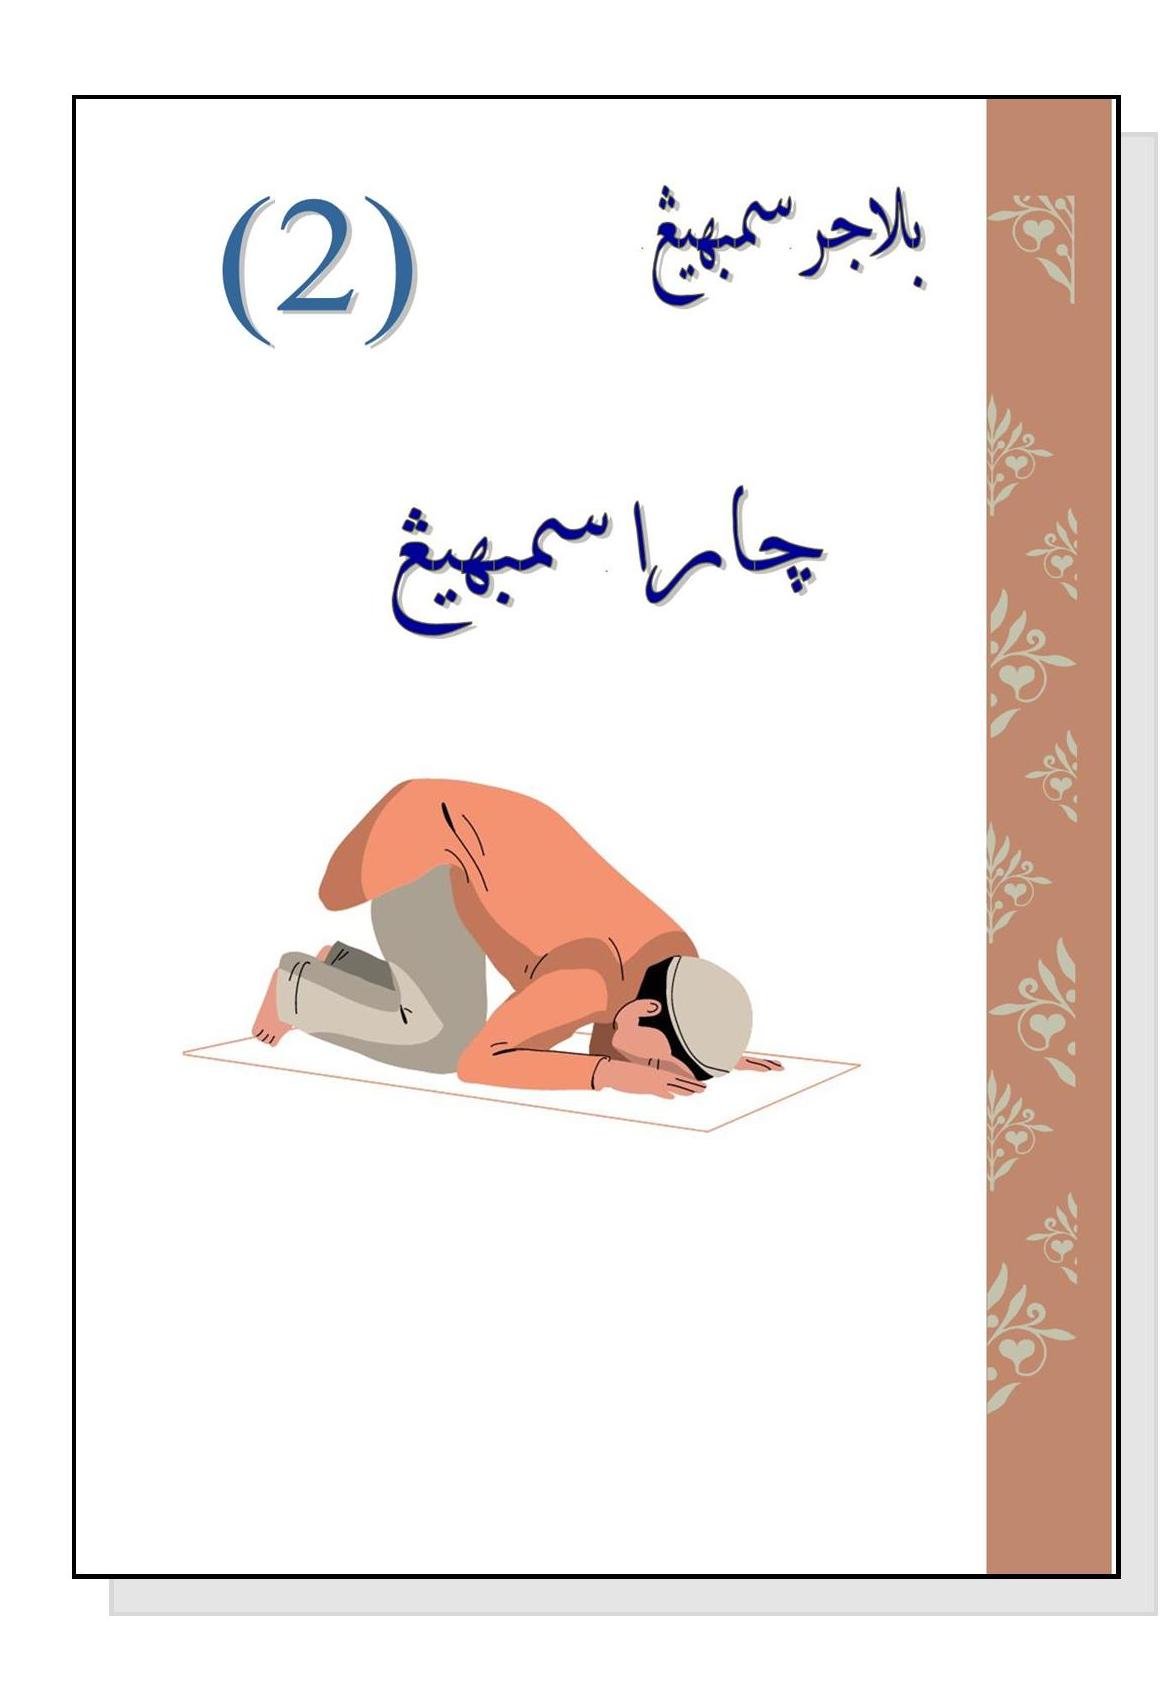 بلاجر سمبهيڠ (2)
چارا سمبهيڠ